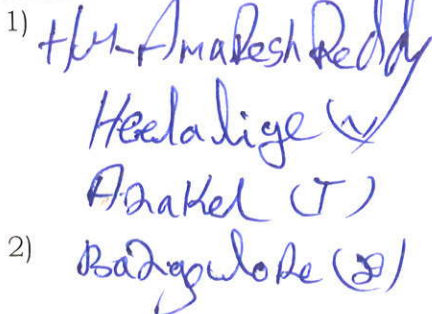 1) H.M. Amaresh Reddy
Heelalige (V)
Anakel (T)
2) Bangalore (D)